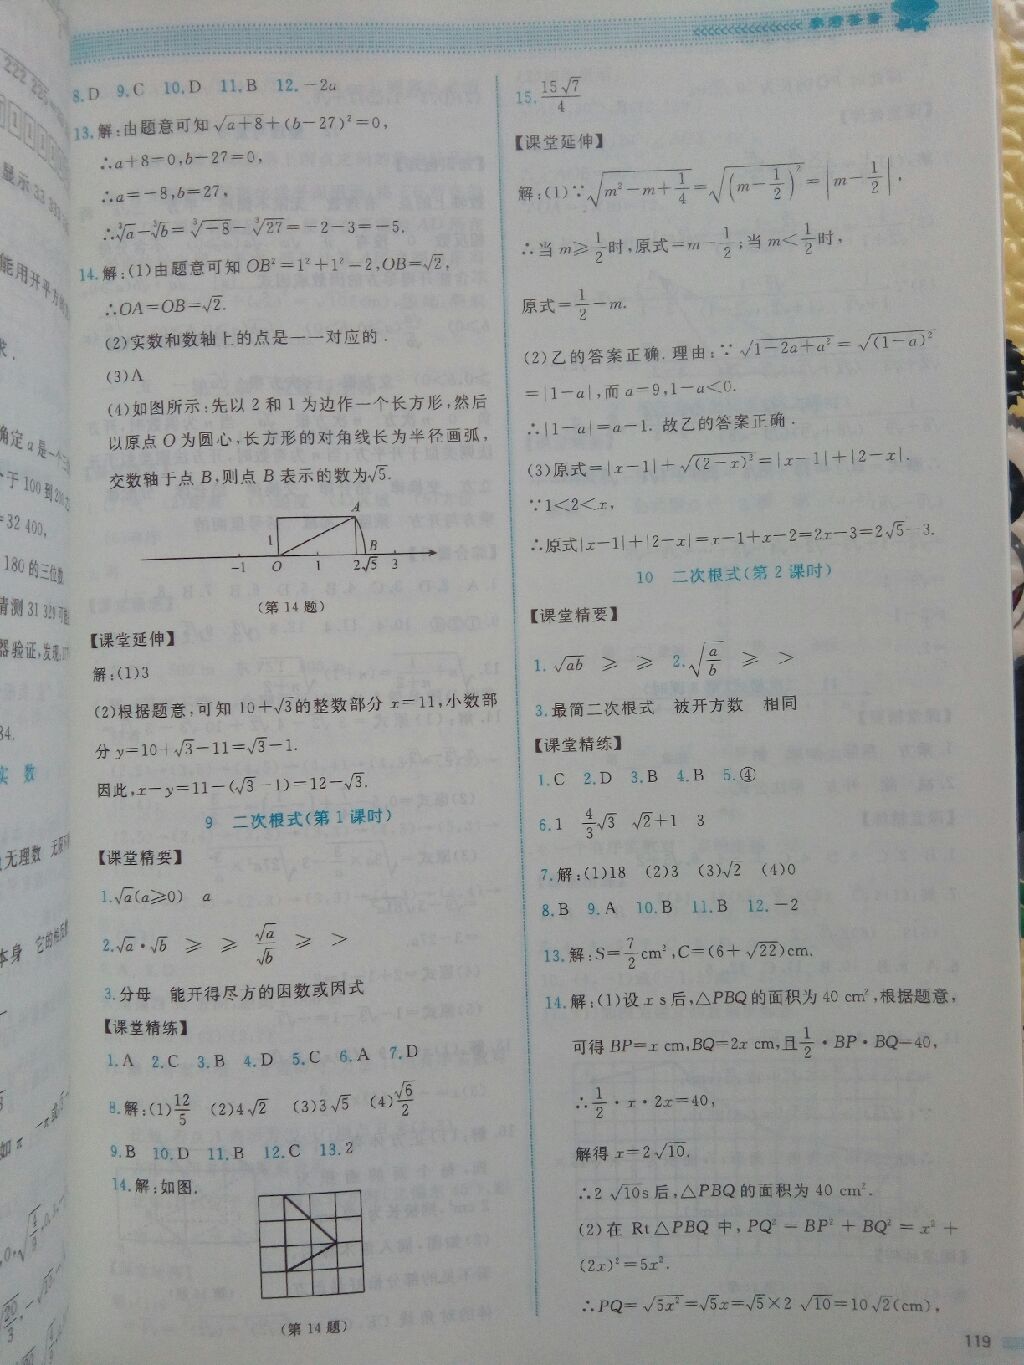 参考答案
8.D 9.C 10.D 11.B 12.-2a
13.解:由题意可知√(a+8)+(b-27)²=0,
∴a+8=0,b-27=0,
∴a=-8,b=27,
∴³√a-³√b=³√-8-³√27=-2-3=-5.
14.解:(1)由题意可知OB²=1²+1²=2,OB=√2,
∴OA=OB=√2.
(2)实数和数轴上的点是一一对应的.
(3)A
(4)如图所示:先以2和1为边作一个长方形,然后
以原点O为圆心,长方形的对角线长为半径画弧,
交数轴于点B,则点B表示的数为√5.
A
1 B
-1 O 1 2√5 3
(第14题)
【课堂延伸】
解:(1)3
(2)根据题意,可知10+√3的整数部分x=11,小数部
分y=10+√3-11=√3-1.
因此,x-y=11-(√3-1)=12-√3.
9 二次根式(第1课时)
【课堂精要】
1.√a(a≥0) a
2.√a·√b ≥ ≥ √a/√b ≥ >
3.分母 能开得尽方的因数或因式
【课堂精练】
1.A 2.C 3.B 4.D 5.C 6.A 7.D
8.解:(1)12/5 (2)4√2 (3)3√5 (4)√6/2
9.B 10.D 11.B 12.C 13.2
14.解:如图.
(第14题)
15.15√7/4
【课堂延伸】
解:(1)∵√(m²-m+1/4)=√((m-1/2)²)=|m-1/2|,
∴当m≥1/2时,原式=m-1/2;当m<1/2时,
原式=1/2-m.
(2)乙的答案正确.理由:∵√(1-2a+a²)=√((1-a)²)
=|1-a|,而a=9,1-a<0.
∴|1-a|=a-1.故乙的答案正确.
(3)原式=|x-1|+√((2-x)²)=|x-1|+|2-x|.
∵1<2<x,
∴原式|x-1|+|2-x|=x-1+x-2=2x-3=2√5-3.
10 二次根式(第2课时)
【课堂精要】
1.√ab ≥ ≥ 2.√(a/b) ≥ >
3.最简二次根式 被开方数 相同
【课堂精练】
1.C 2.D 3.B 4.B 5.④
6.1 4/3√3 √2+1 3
7.解:(1)18 (2)3 (3)√2 (4)0
8.B 9.A 10.B 11.B 12.-2
13.解:S=7/2cm²,C=(6+√22)cm.
14.解:(1)设x s后,△PBQ的面积为40 cm²,根据题意,
可得BP=x cm,BQ=2x cm,且1/2·BP·BQ=40,
∴1/2·x·2x=40,
解得x=2√10.
∴2√10s后,△PBQ的面积为40 cm².
(2)在Rt△PBQ中,PQ²=BP²+BQ²=x²+
(2x)²=5x².
∴PQ=√5x²=√5x=√5×2√10=10√2(cm),
119